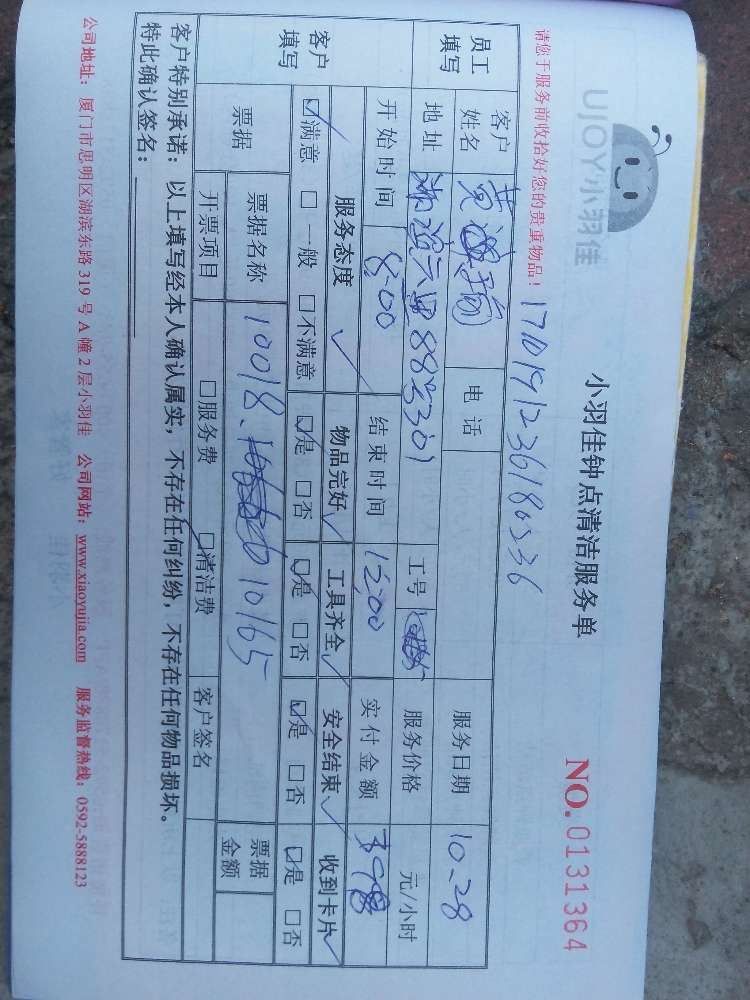 UJOY小羽佳
小羽佳钟点清洁服务单
NO. 0131364
请您于服务前收拾好您的贵重物品！
17D191236180536
员工填写
客户姓名 电话 服务日期 10.28
地址 883301 工号 服务价格 元/小时
开始时间 8:00 结束时间 12:00 实付金额 398
客户填写
服务态度 ✓ 物品完好 ✓ 工具齐全 ✓ 安全结束 ✓ 收到卡片 ✓
☑满意 □一般 □不满意 ☑是 □否 ☑是 □否 ☑是 □否 ☑是 □否
票据 票据名称 10018. 10165 票据金额
开票项目 □服务费 ☑清洁费 客户签名
客户特别承诺：以上填写经本人确认属实，不存在任何纠纷，不存在任何物品损坏。
特此确认签名：
公司地址：厦门市思明区湖滨东路319号A幢2层小羽佳 公司网站：www.xiaoyujia.com 服务监督热线：0592-5888123